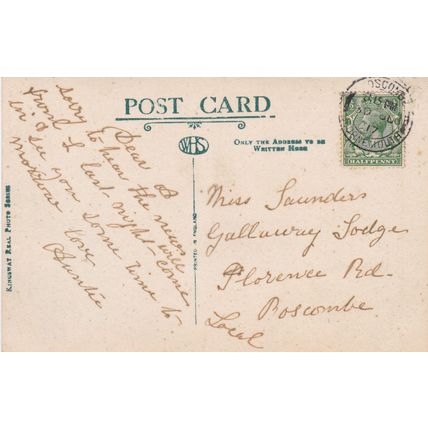 POST CARD
WHS
ONLY THE ADDRESS TO BE
WRITTEN HERE
KINGSWAY REAL PHOTO SERIES
PRINTED IN ENGLAND
Dear
sorry to hear the news
Fund I last night - come
in & see you some time to-
love
Auntie
Miss Saunders
Gallaway Lodge
Florence Rd-
Boscombe
Local
BOSCOMBE
BOURNEMOUTH
17
HALFPENNY